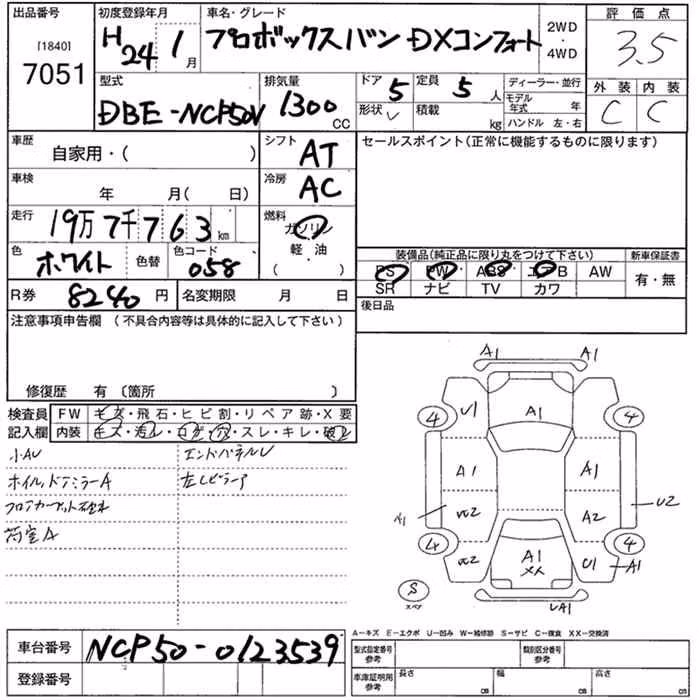 出品番号 初度登録年月 車名・グレード 評価点
[1840]
7051
H24 1月 プロボックスバン DXコンフォート 2WD・4WD 3.5
型式 排気量 ドア 5 定員 5人 ディーラー・並行 外装 内装
DBE-NCP50V 1300CC 形状 V 積載 kg モデル年式 年 C C
ハンドル 左・右
車歴 シフト セールスポイント(正常に機能するものに限ります)
自家用・( ) AT
車検 冷房
年 月( 日) AC
走行 燃料
19万7千763km ガソリン
色 色コード 軽・油 装備品(純正品に限り丸をつけて下さい) 新車保証書
ホワイト 色替 058 ( ) PS PW ABS エアB AW 有・無
SR ナビ TV カワ
R券 8240円 名変期限 月 日 後日品
注意事項申告欄(不具合内容等は具体的に記入して下さい)
修復歴 有〔箇所 〕
検査員 FW キズ・飛石・ヒビ割・リペア跡・X要
記入欄 内装 キズ・汚レ・コゲ・穴・スレ・キレ・破レ
小AU エンドパネルU
ホイル,ドアミラーA
荷室A
A1 A1
4 U1 A1 4
A1 A1
A1 UC2 A2 U2
4 UC2 A1 U1 4 A1
XX
S
スペア UA1
A-キズ E-エクボ U-凹み W-補修跡 S-サビ C-腐食 XX-交換済
車台番号 NCP50-0123539 型式指定番号 参考 類別区分番号 参考
登録番号 車庫証明用 参考 長さ cm 幅 cm 高さ cm